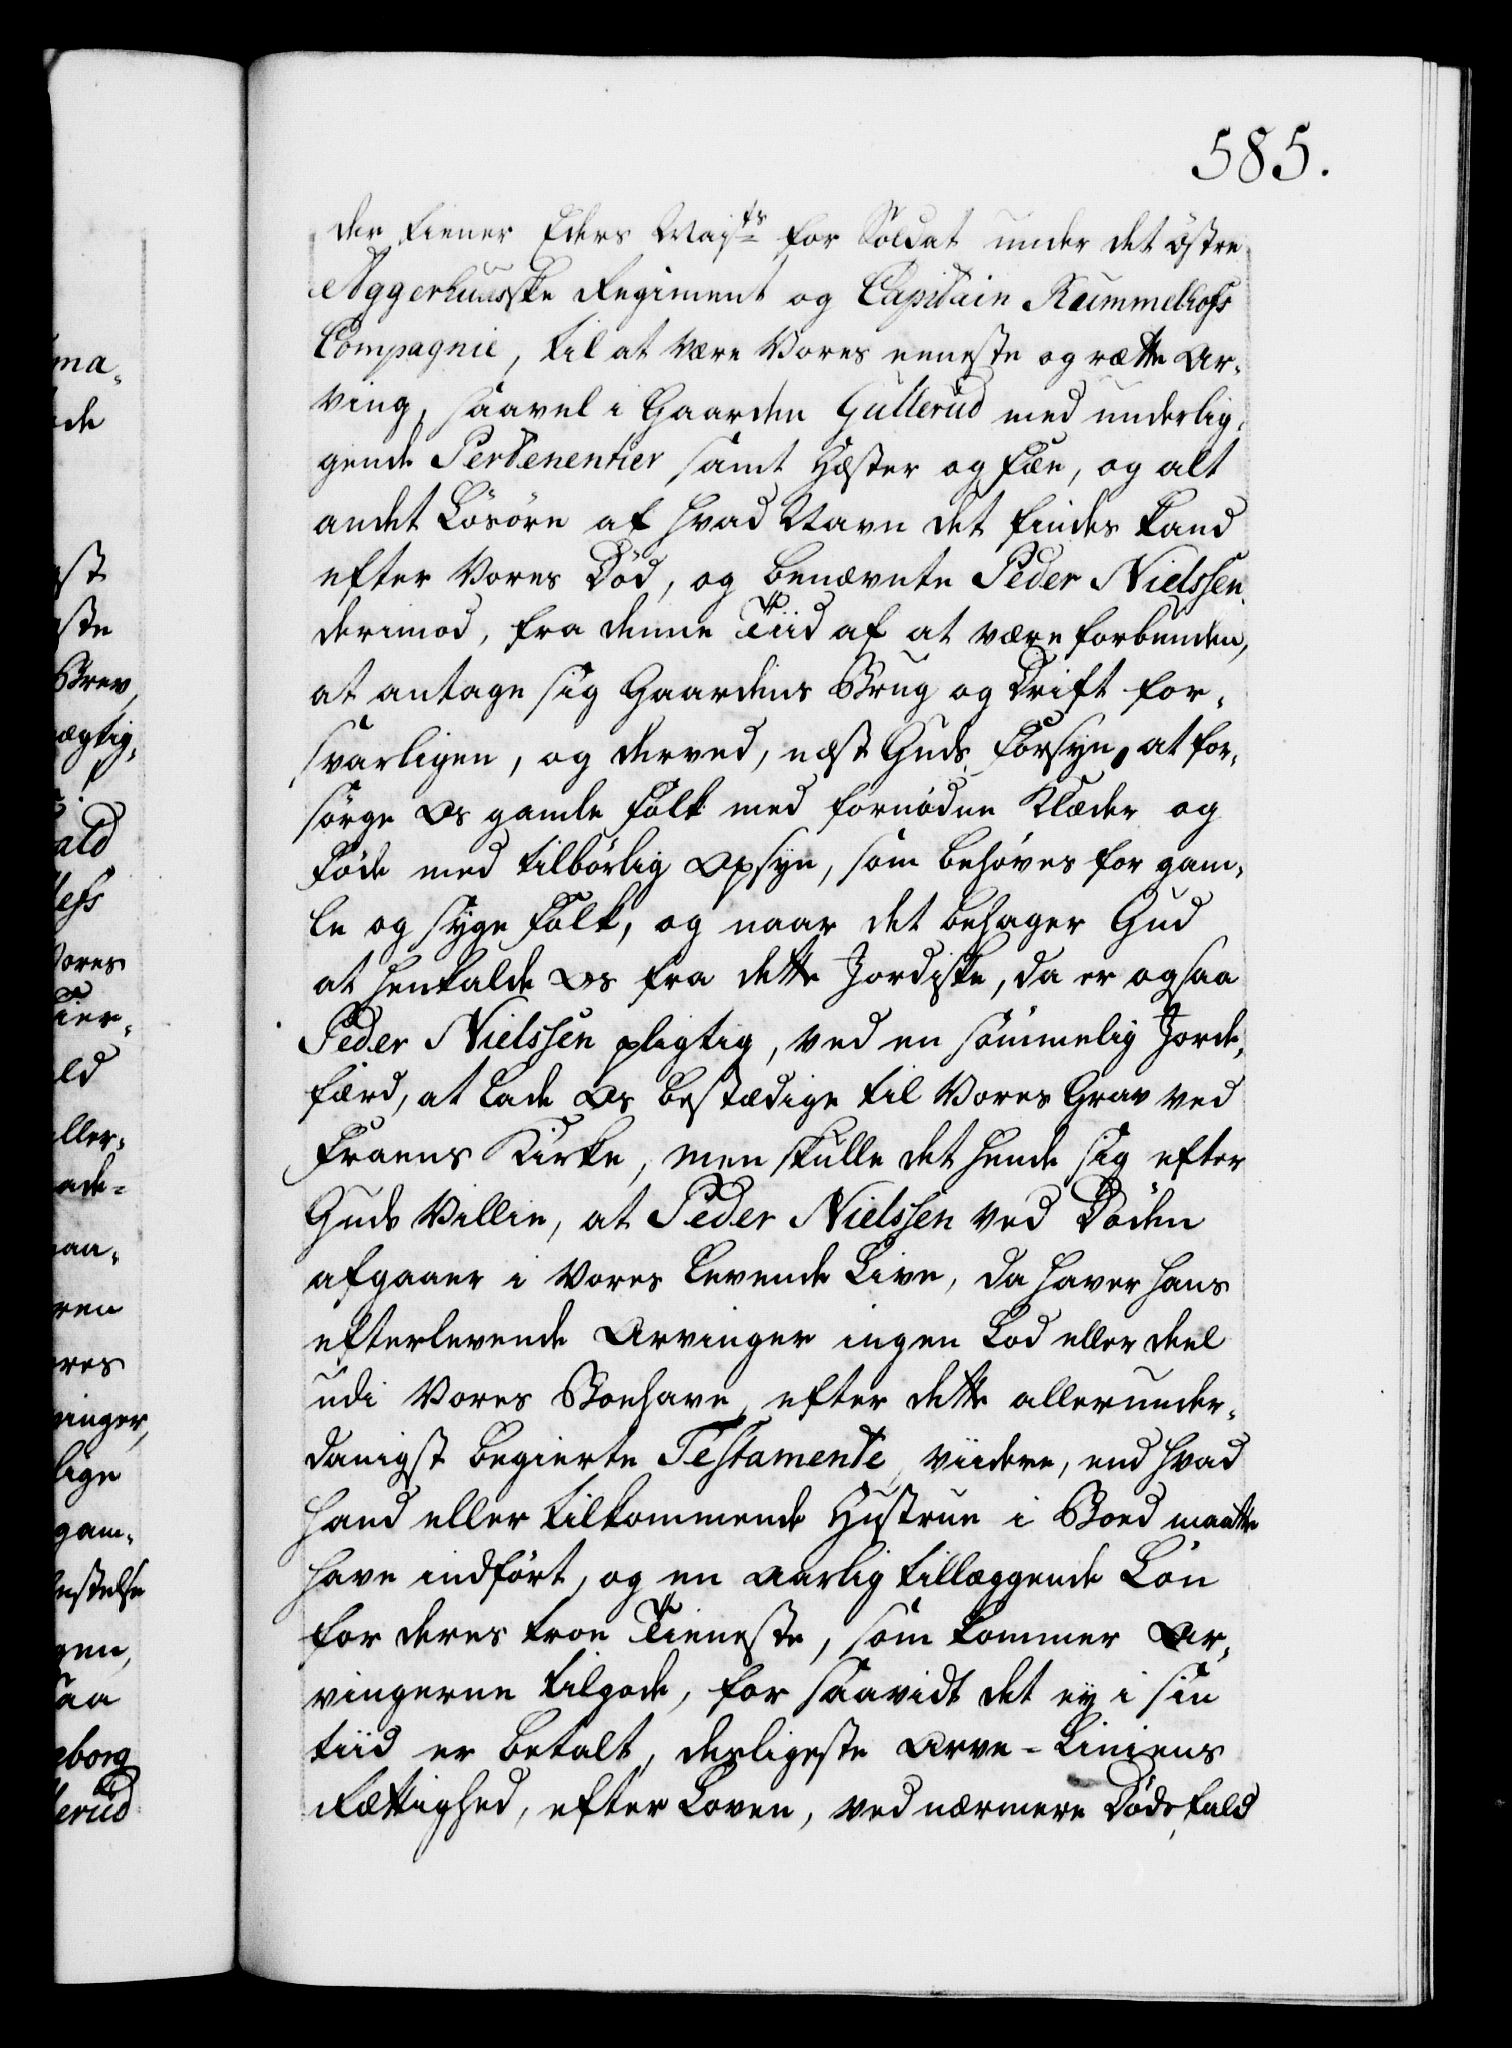 585.
der tiener Eders Maj:ts for Soldat under det östre
Aggerhuusske Regiment og Capitain Rummelhofs
Compagnie, til at være Vores eeneste og rætte Ar-
ving, saavel i Gaarden Gullerud med underlig-
gende Pertenentier samt Hæster og Fæe, og alt
andet Lösöre af hvad Navn det findes kand
efter Vores Död, og benævnte Peder Nielssen
derimod, fra denne Tiid af at være forbunden,
at antage sig Gaardens Brug og Drift for-
svarligen, og derved, næst Guds Forsyn, at for-
sörge Os gamle Folk med fornödne Klæder og
Föde med tilbörlig Opsyn, som behöves for gam-
le og syge Folk, og naar det behager Gud
at henkalde Os fra dette Jordiske, da er ogsaa
Peder Nielssen pligtig, ved en sömmelig Jorde-
færd, at lade Os bestædige til Vores Grav ved
Fraens Kirke, men skulle det hende sig efter
Guds Villie, at Peder Nielssen ved Döden
afgaaer i Vores levende Live, da haver hans
efterlevende Arvinger ingen Lod eller deel
udi Vores Boehave, efter dette allerunder-
danigst begierte Testamente, viidere, end hvad
hand eller tilkommende Hustrue i Boed maatte
have indfört, og en aarlig tillæggende Lön
for deres troe Tieneste, som kommer Ar-
vingerne tilgode, for saavidt det ey i sin
tiid er betalt, desligeste Arve-Liniens
Rættighed, efter Loven, ved nærmere Dödsfald